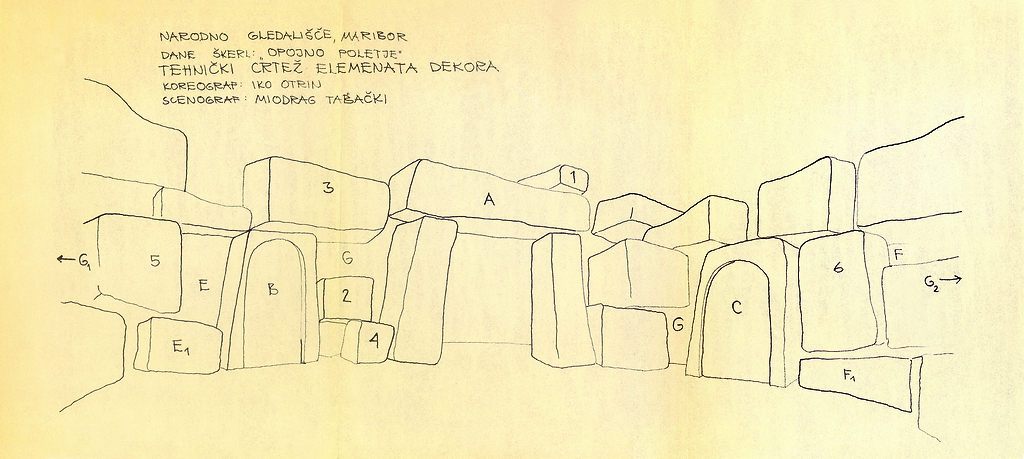 NARODNO GLEDALIŠČE, MARIBOR
DANE ŠKERL: „OPOJNO POLETJE"
TEHNIČKI CRTEŽ ELEMENATA DEKORA
KOREOGRAF: IKO OTRIN
SCENOGRAF: MIODRAG TABAČKI
1
3
A
←G1
5
E
B
G
2
4
E1
C
G
6
F
G2→
F1